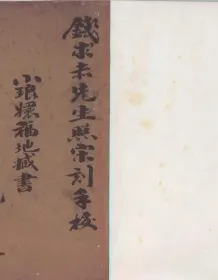 錢求未先生照宋刻手校
小琅嬛福地藏書